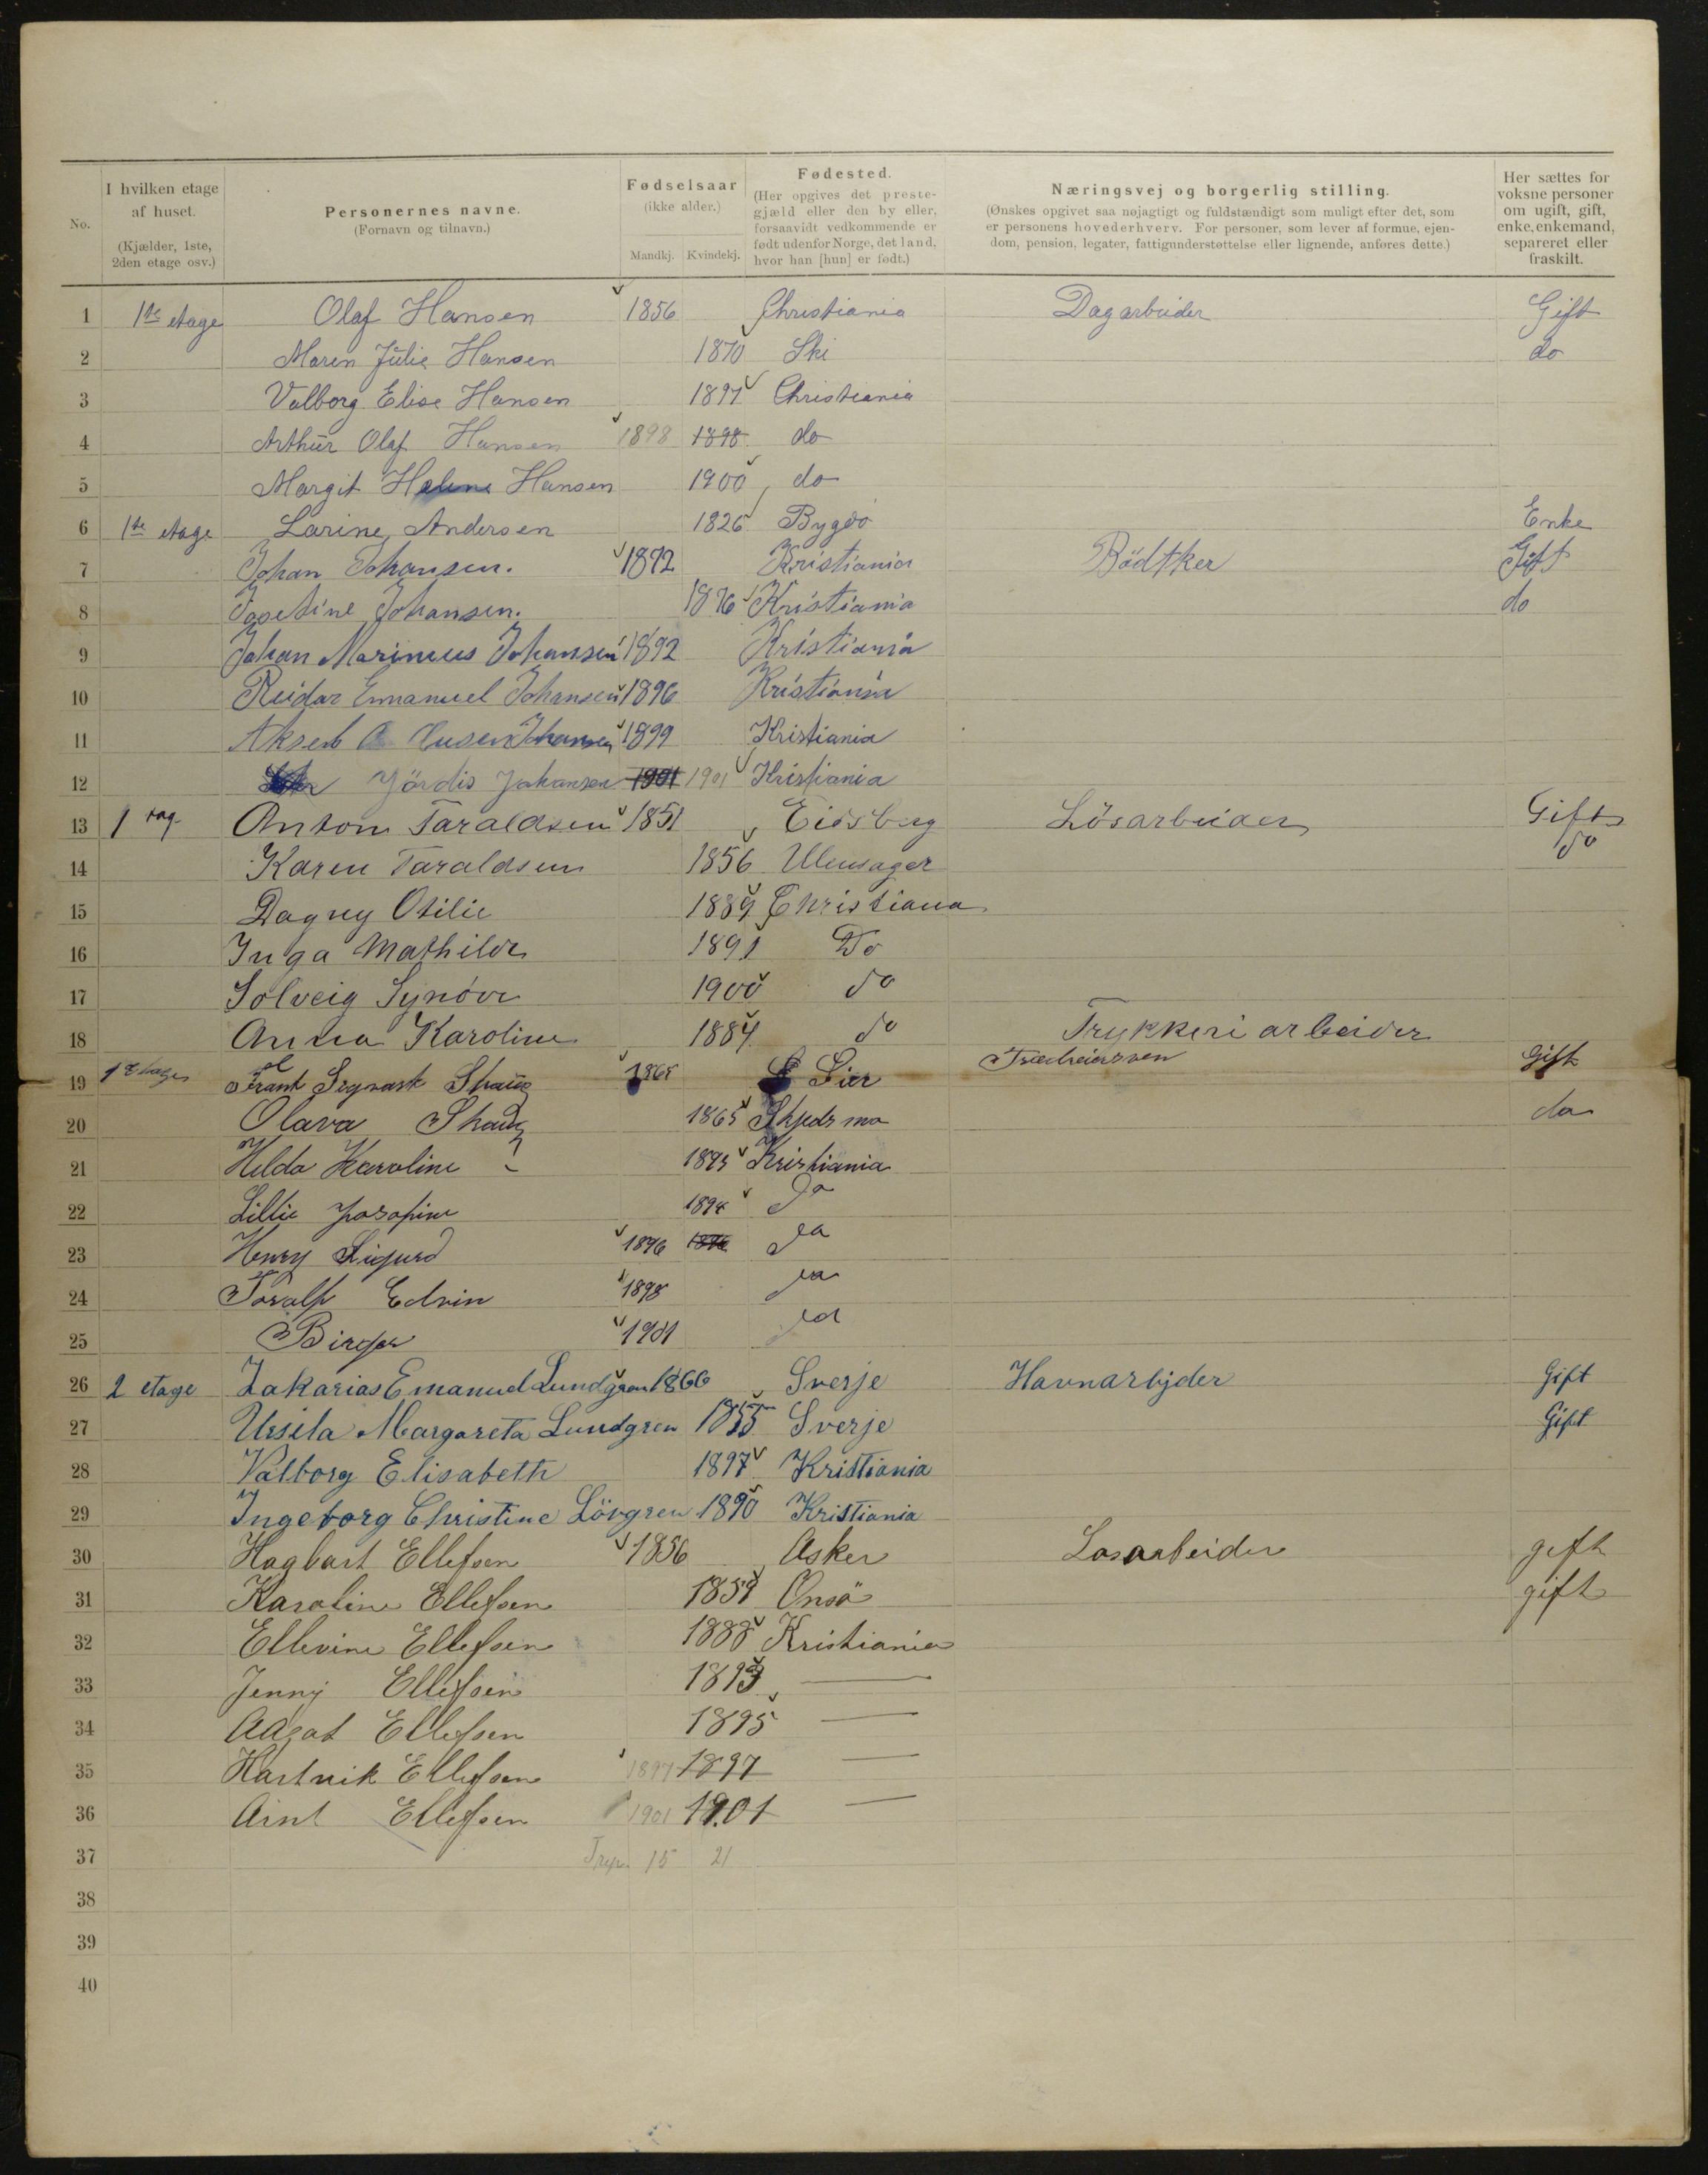 No. I hvilken etage af huset. (Kjælder, 1ste, 2den etage osv.) Personernes navne. (Fornavn og tilnavn.) Fødselsaar (ikke alder.) Mandkj. Kvindekj. Fødested. (Her opgives det prestegjæld eller den by eller, forsaavidt vedkommende er født udenfor Norge, det land, hvor han [hun] er født.) Næringsvej og borgerlig stilling. (Ønskes opgivet saa nøjagtigt og fuldstændigt som muligt efter det, som er personens hovederhverv. For personer, som lever af formue, ejendom, pension, legater, fattigunderstøttelse eller lignende, anføres dette.) Her sættes for voksne personer om ugift, gift, enke, enkemand, separeret eller fraskilt.
1 1ste etage Olaf Hansen 1856 Christiania Dagarbeider Gift
2 Maren Julie Hansen 1870 Ski do
3 Valborg Elise Hansen 1897 Christiania
4 Arthur Olaf Hansen 1898 1898 do
5 Margit Helene Hansen 1900 do
6 1ste etage Larine Andersen 1826 Bygdø Enke
7 Johan Johansen. 1872 Kristiania Bödtker Gift
8 Josefine Johansen. 1876 Kristiania do
9 Johan Marinius Johansen 1892 Kristiania
10 Reidar Emanuel Johansen 1896 Kristiania
11 Aksel Johansen 1899 Kristiania
12 Hjördis Johansen 1901 1901 Kristiania
13 1 tag Anton Taraldsen 1851 Eidsberg Lösarbeider Gift
14 Karen Taraldsen 1856 Ullensager do
15 Dagny Otilie 1889 Christiana
16 Inga Mathilde 1891 Do
17 Solveig Synöve 1900 do
18 Anna Karoline 1884 do Trykkeri arbeider
19 1 etage Sigvart Skaug 1868 Lier Gift
20 Olava Skaug 1865 Skjedsmo do
21 Hilda Karoline 1893 Kristiania
22 Lillie Josefine 1894 do
23 Henry Sigurd 1896 1896 do
24 Toralf Edvin 1898 do
25 Birger 1901 do
26 2 etage Zakarias Emanuel Lundgren 1866 Sverje Havnarbjder Gift
27 Ursila Margareta Lundgren 1855 Sverje Gift
28 Valborg Elisabeth 1897 Kristiania
29 Ingeborg Christine Lövgren 1890 Kristiania
30 Hagbart Ellefsen 1856 Asker Losarbeider gift
31 Karoline Ellefsen 1859 Onsö gift
32 Ellevine Ellefsen 1888 Kristiania
33 Jenny Ellefsen 1893 —
34 Aagot Ellefsen 1895 —
35 Hartvik Ellefsen 1897 1897 —
36 Arnt Ellefsen 1901 1901 —
37 15 21
38
39
40